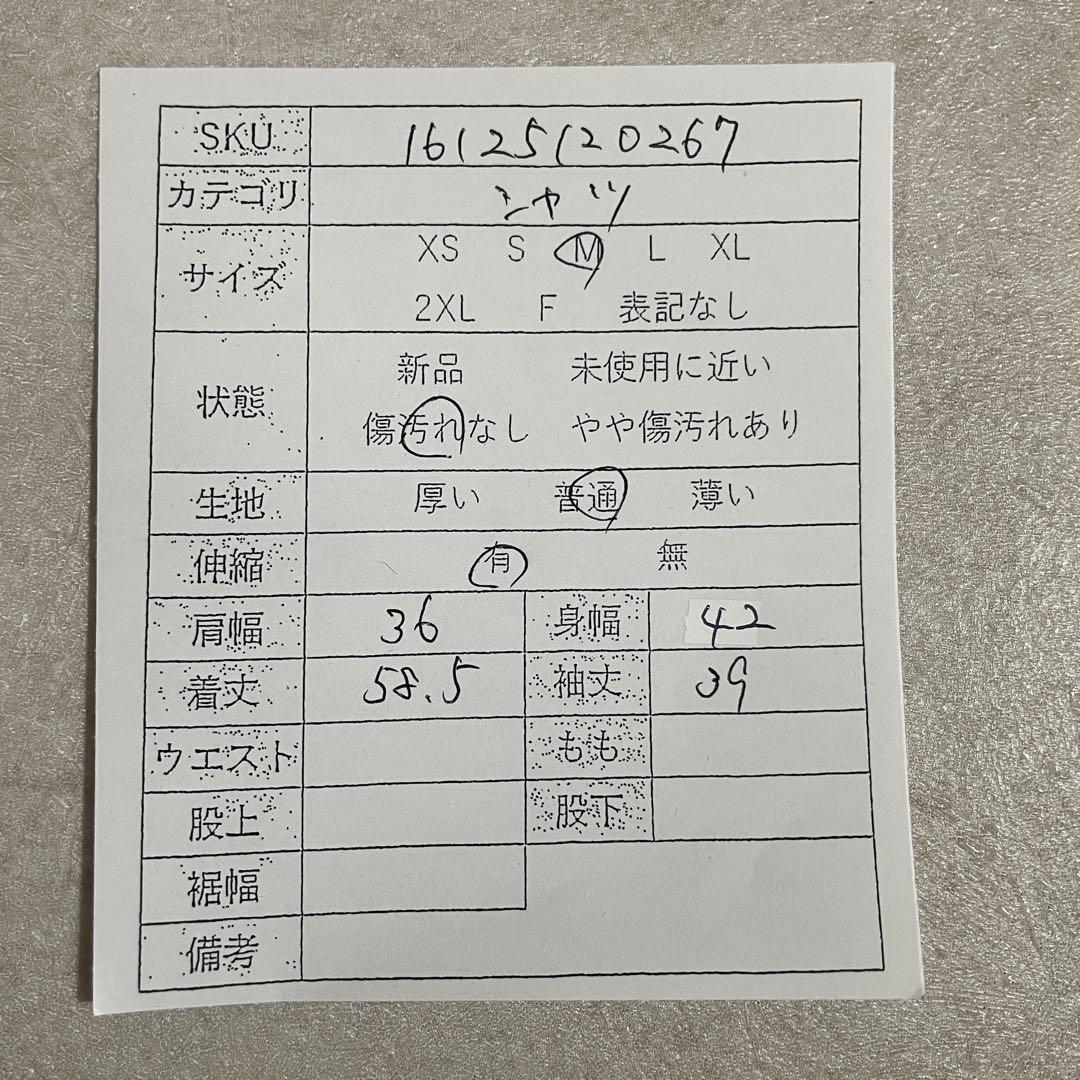 SKU 16125120267
カテゴリ シャツ
サイズ XS S M L XL
2XL F 表記なし
状態 新品 未使用に近い
傷汚れなし やや傷汚れあり
生地 厚い 普通 薄い
伸縮 有 無
肩幅 36 身幅 42
着丈 58.5 袖丈 39
ウエスト もも
股上 股下
裾幅
備考